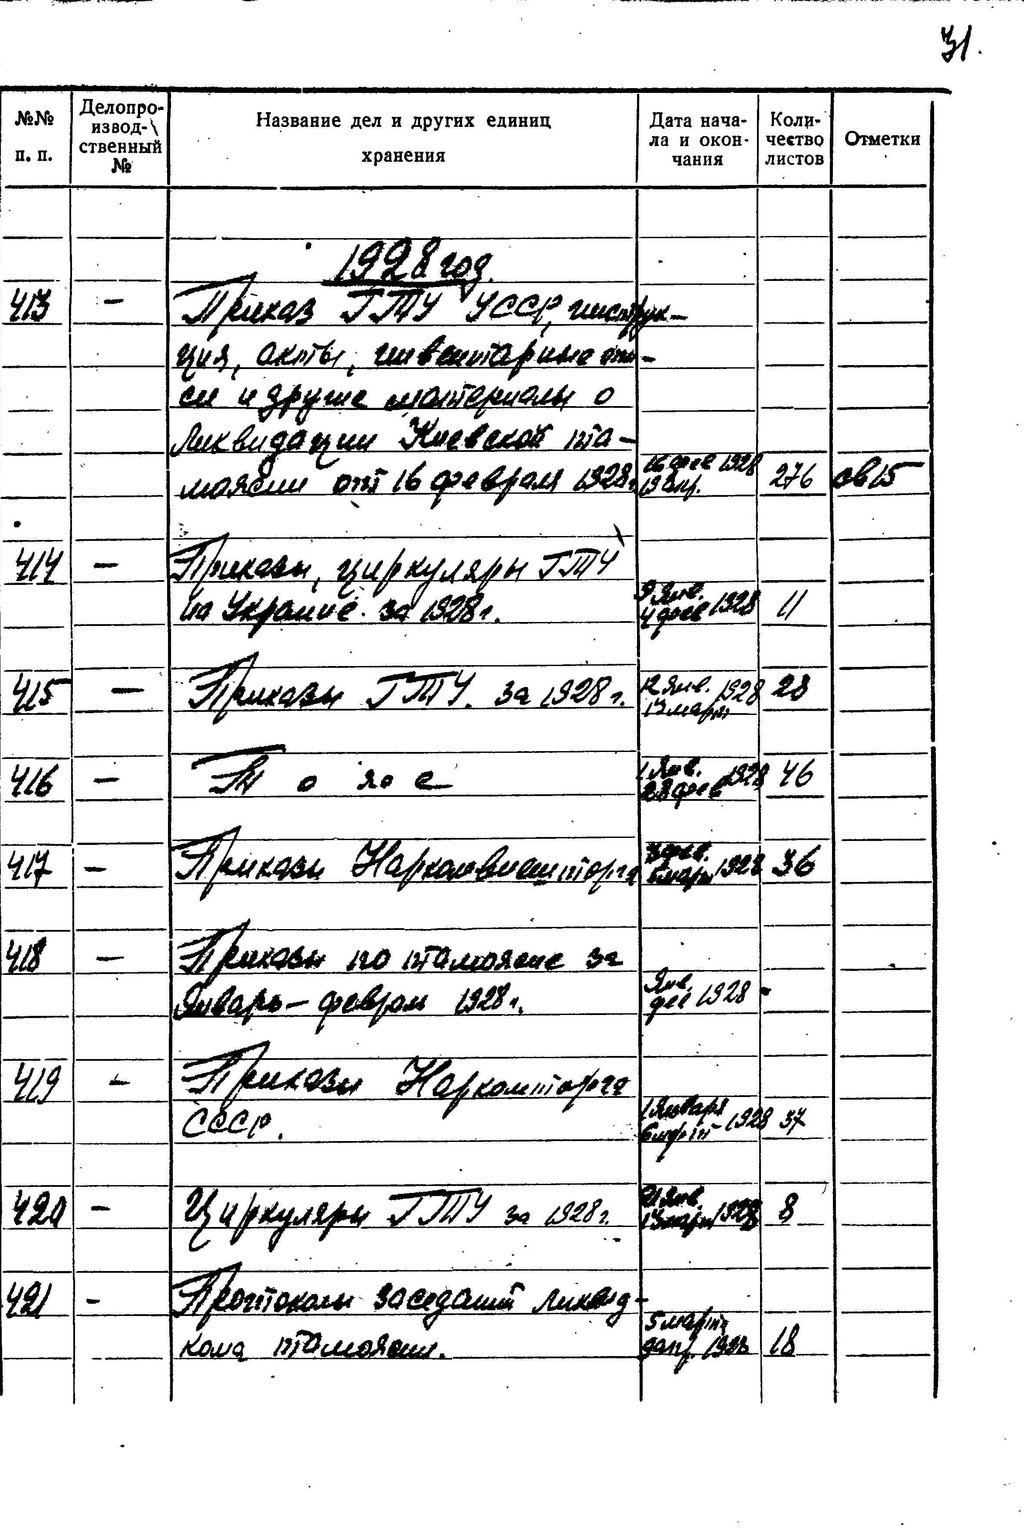 31.
№№ п. п.
Делопро-
извод-
ственный
№
Название дел и других единиц
хранения
Дата нача-
ла и окон-
чания
Коли-
чество
листов
Отметки
1928 год.
413 — Приказ ГТУ УССР, инструк-
ция, акты, инвентарные опи-
си и другие материалы о
ликвидации Киевской та-
можни от 16 февраля 1928г. 16 фев 1928 276 св 15
19 апр.
414 — Приказы, циркуляры ГТУ
на Украине за 1928г. 9 янв. 4 фев 1928 11
415 — Приказы ГТУ. за 1928г. 12 янв. 1928 28
13 март
416 — То же 1 янв. 28 фев 1928 46
417 — Приказы Наркомвнешторга 3 фев. 5 март 1928 36
418 — Приказы по таможне за
Январь – феврал 1928г. Янв. фев 1928 -
419 — Приказы Наркомторга
СССР. 1 января 6 март 1928 37
420 — Циркуляры ГТУ за 1928г. 21 янв. 13 март 1928 8
421 — Протоколы заседаний ликвид-
кома таможни. 5 март апр. 1928 18